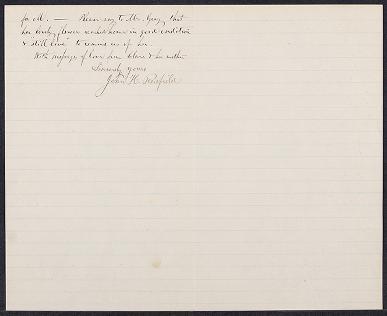 for all. — Please say to Mrs. Gray, that
her lovely flower reached home in good condition
& still live to remind us of her.
With message of love from & her mother
Sincerely yours
John H. Redfield